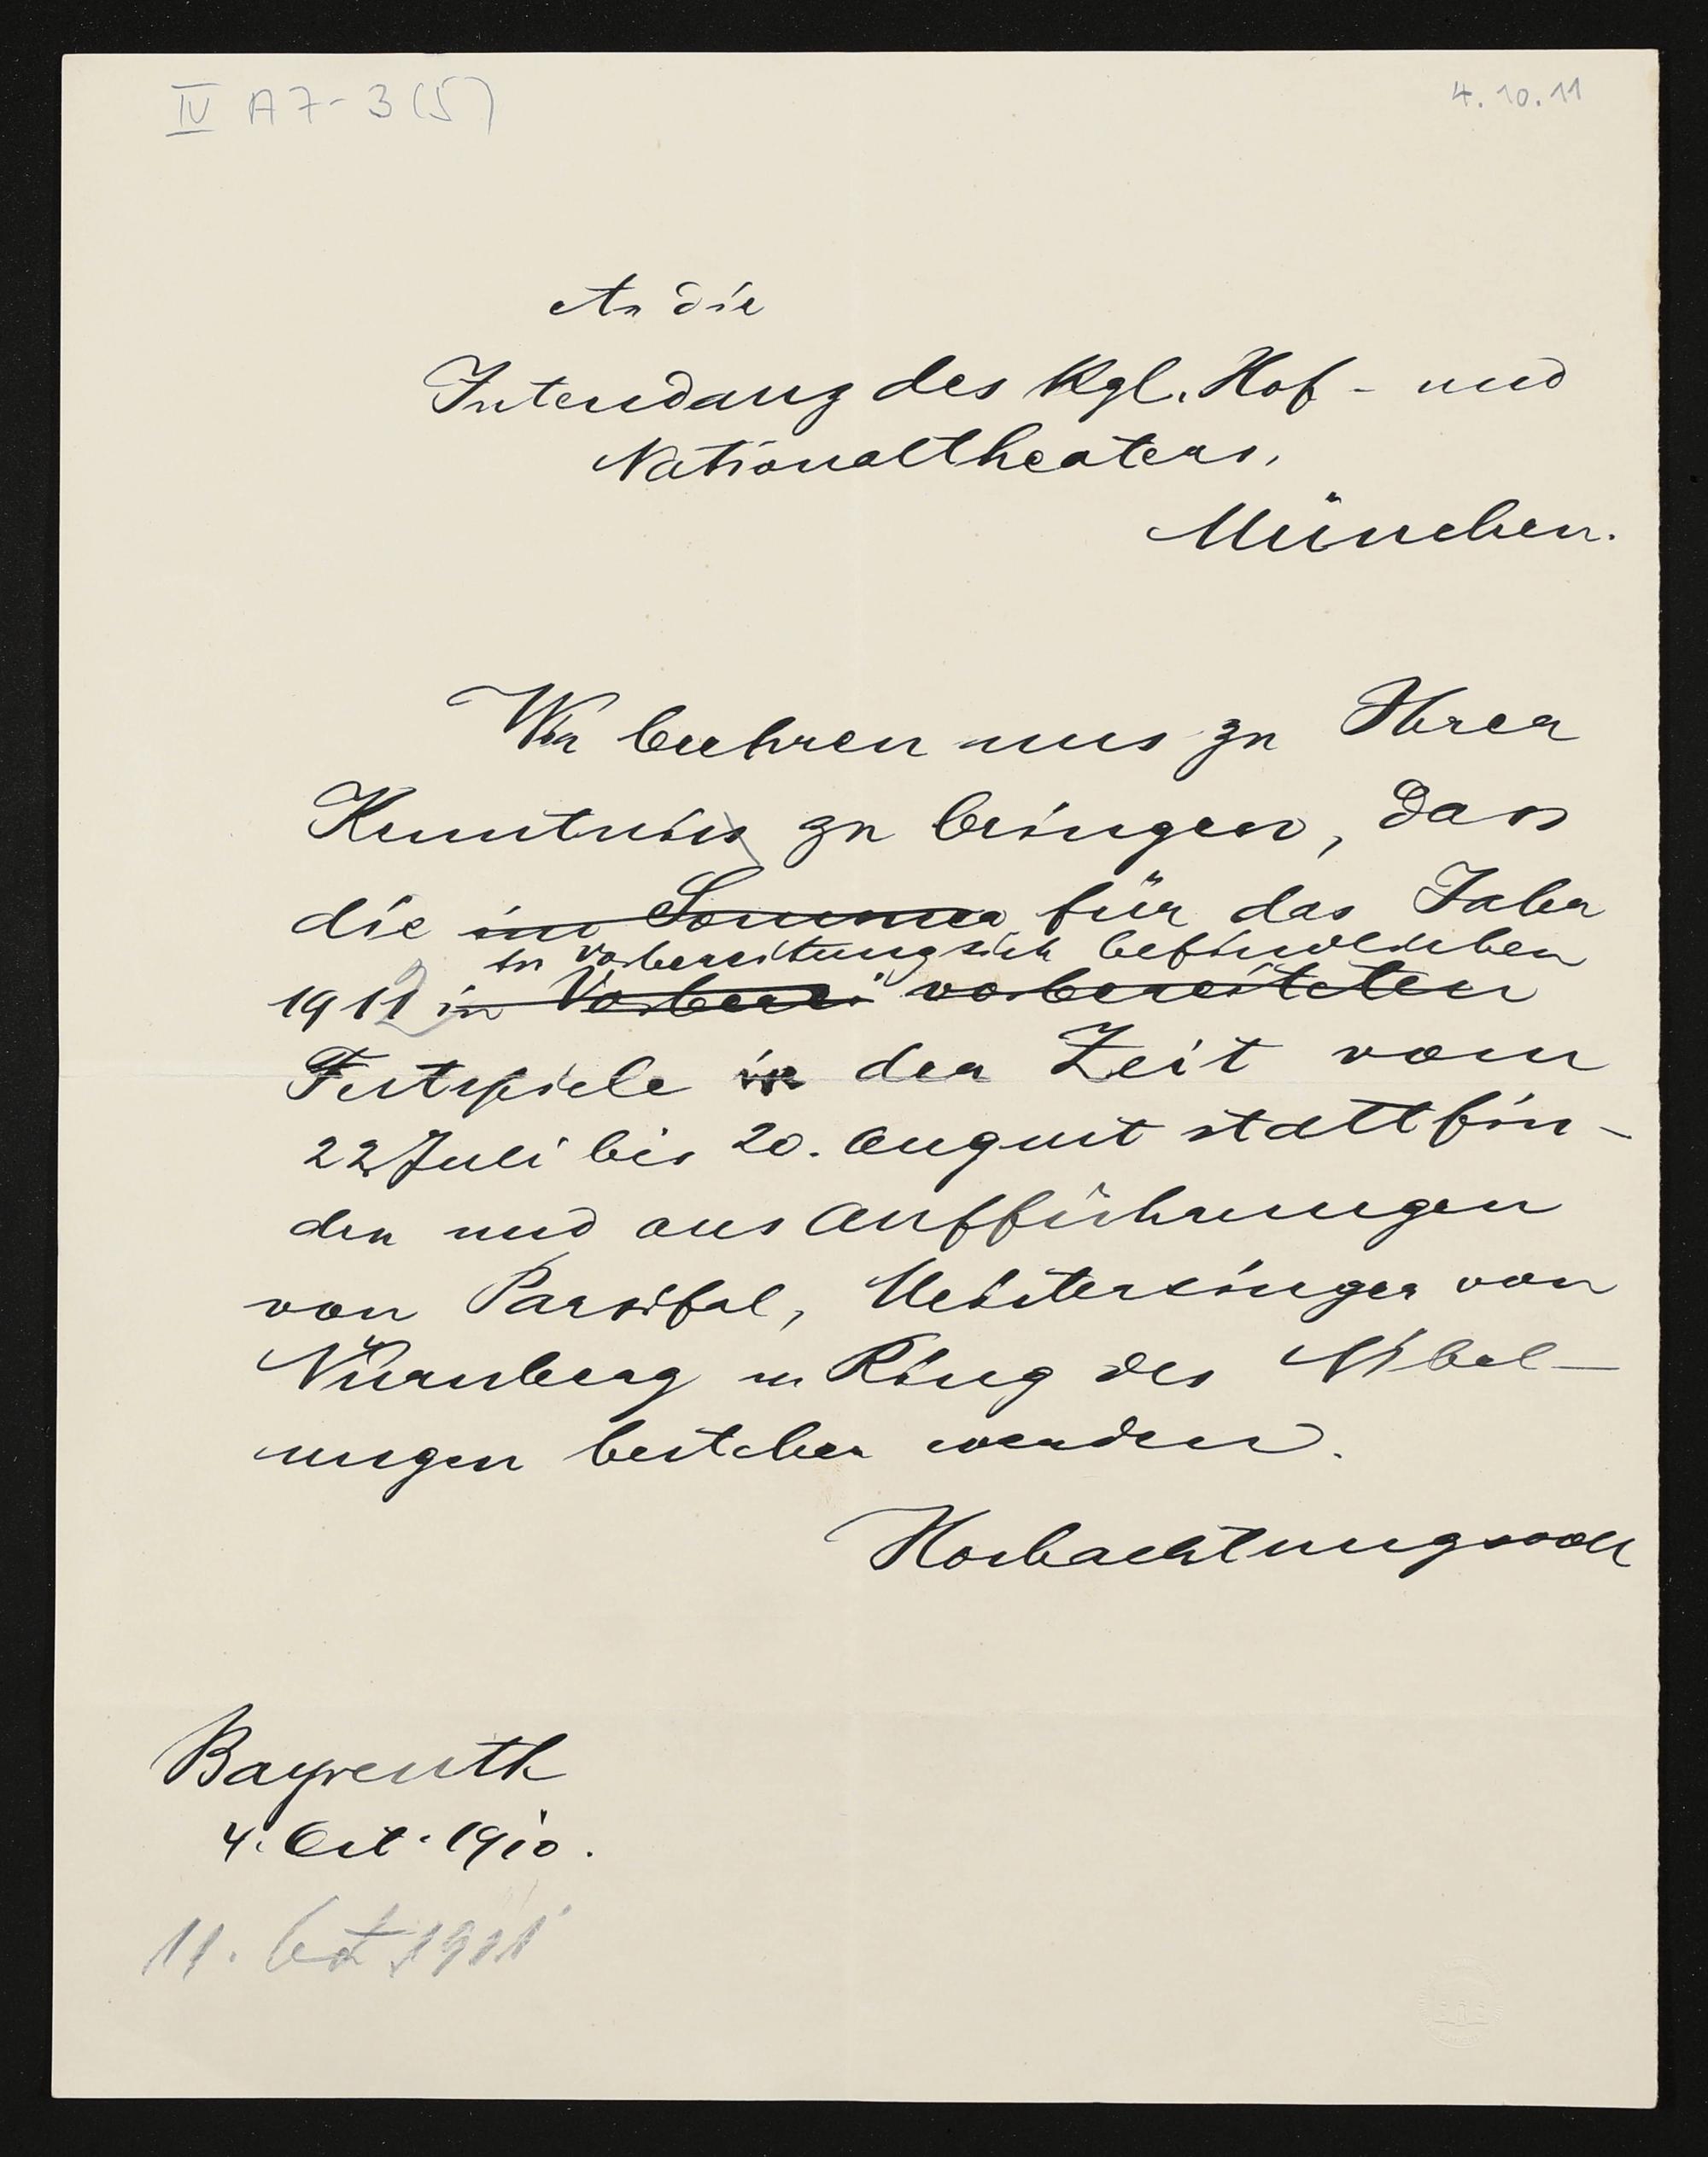 IV A7-3(5)
4.10.11
An die
Intendanz des Kgl. Hof- und
Nationaltheaters,
München.
Wir beehren uns zu Ihrer
Kenntniss zu bringen, dass
die im Sommer für das Jahr
in Vorbereitung sich befindlichen
1912 in Vorberei vorbereiteten
Festspiele in der Zeit vom
22 Juli bis 20. August stattfin-
den und aus Aufführungen
von Parsifal, Meistersinger von
Nürnberg u Ring des Nibel-
ungen bestehen werden.
Hochachtungsvoll
Bayreuth
4. Oct. 1910.
11. Oct 1911